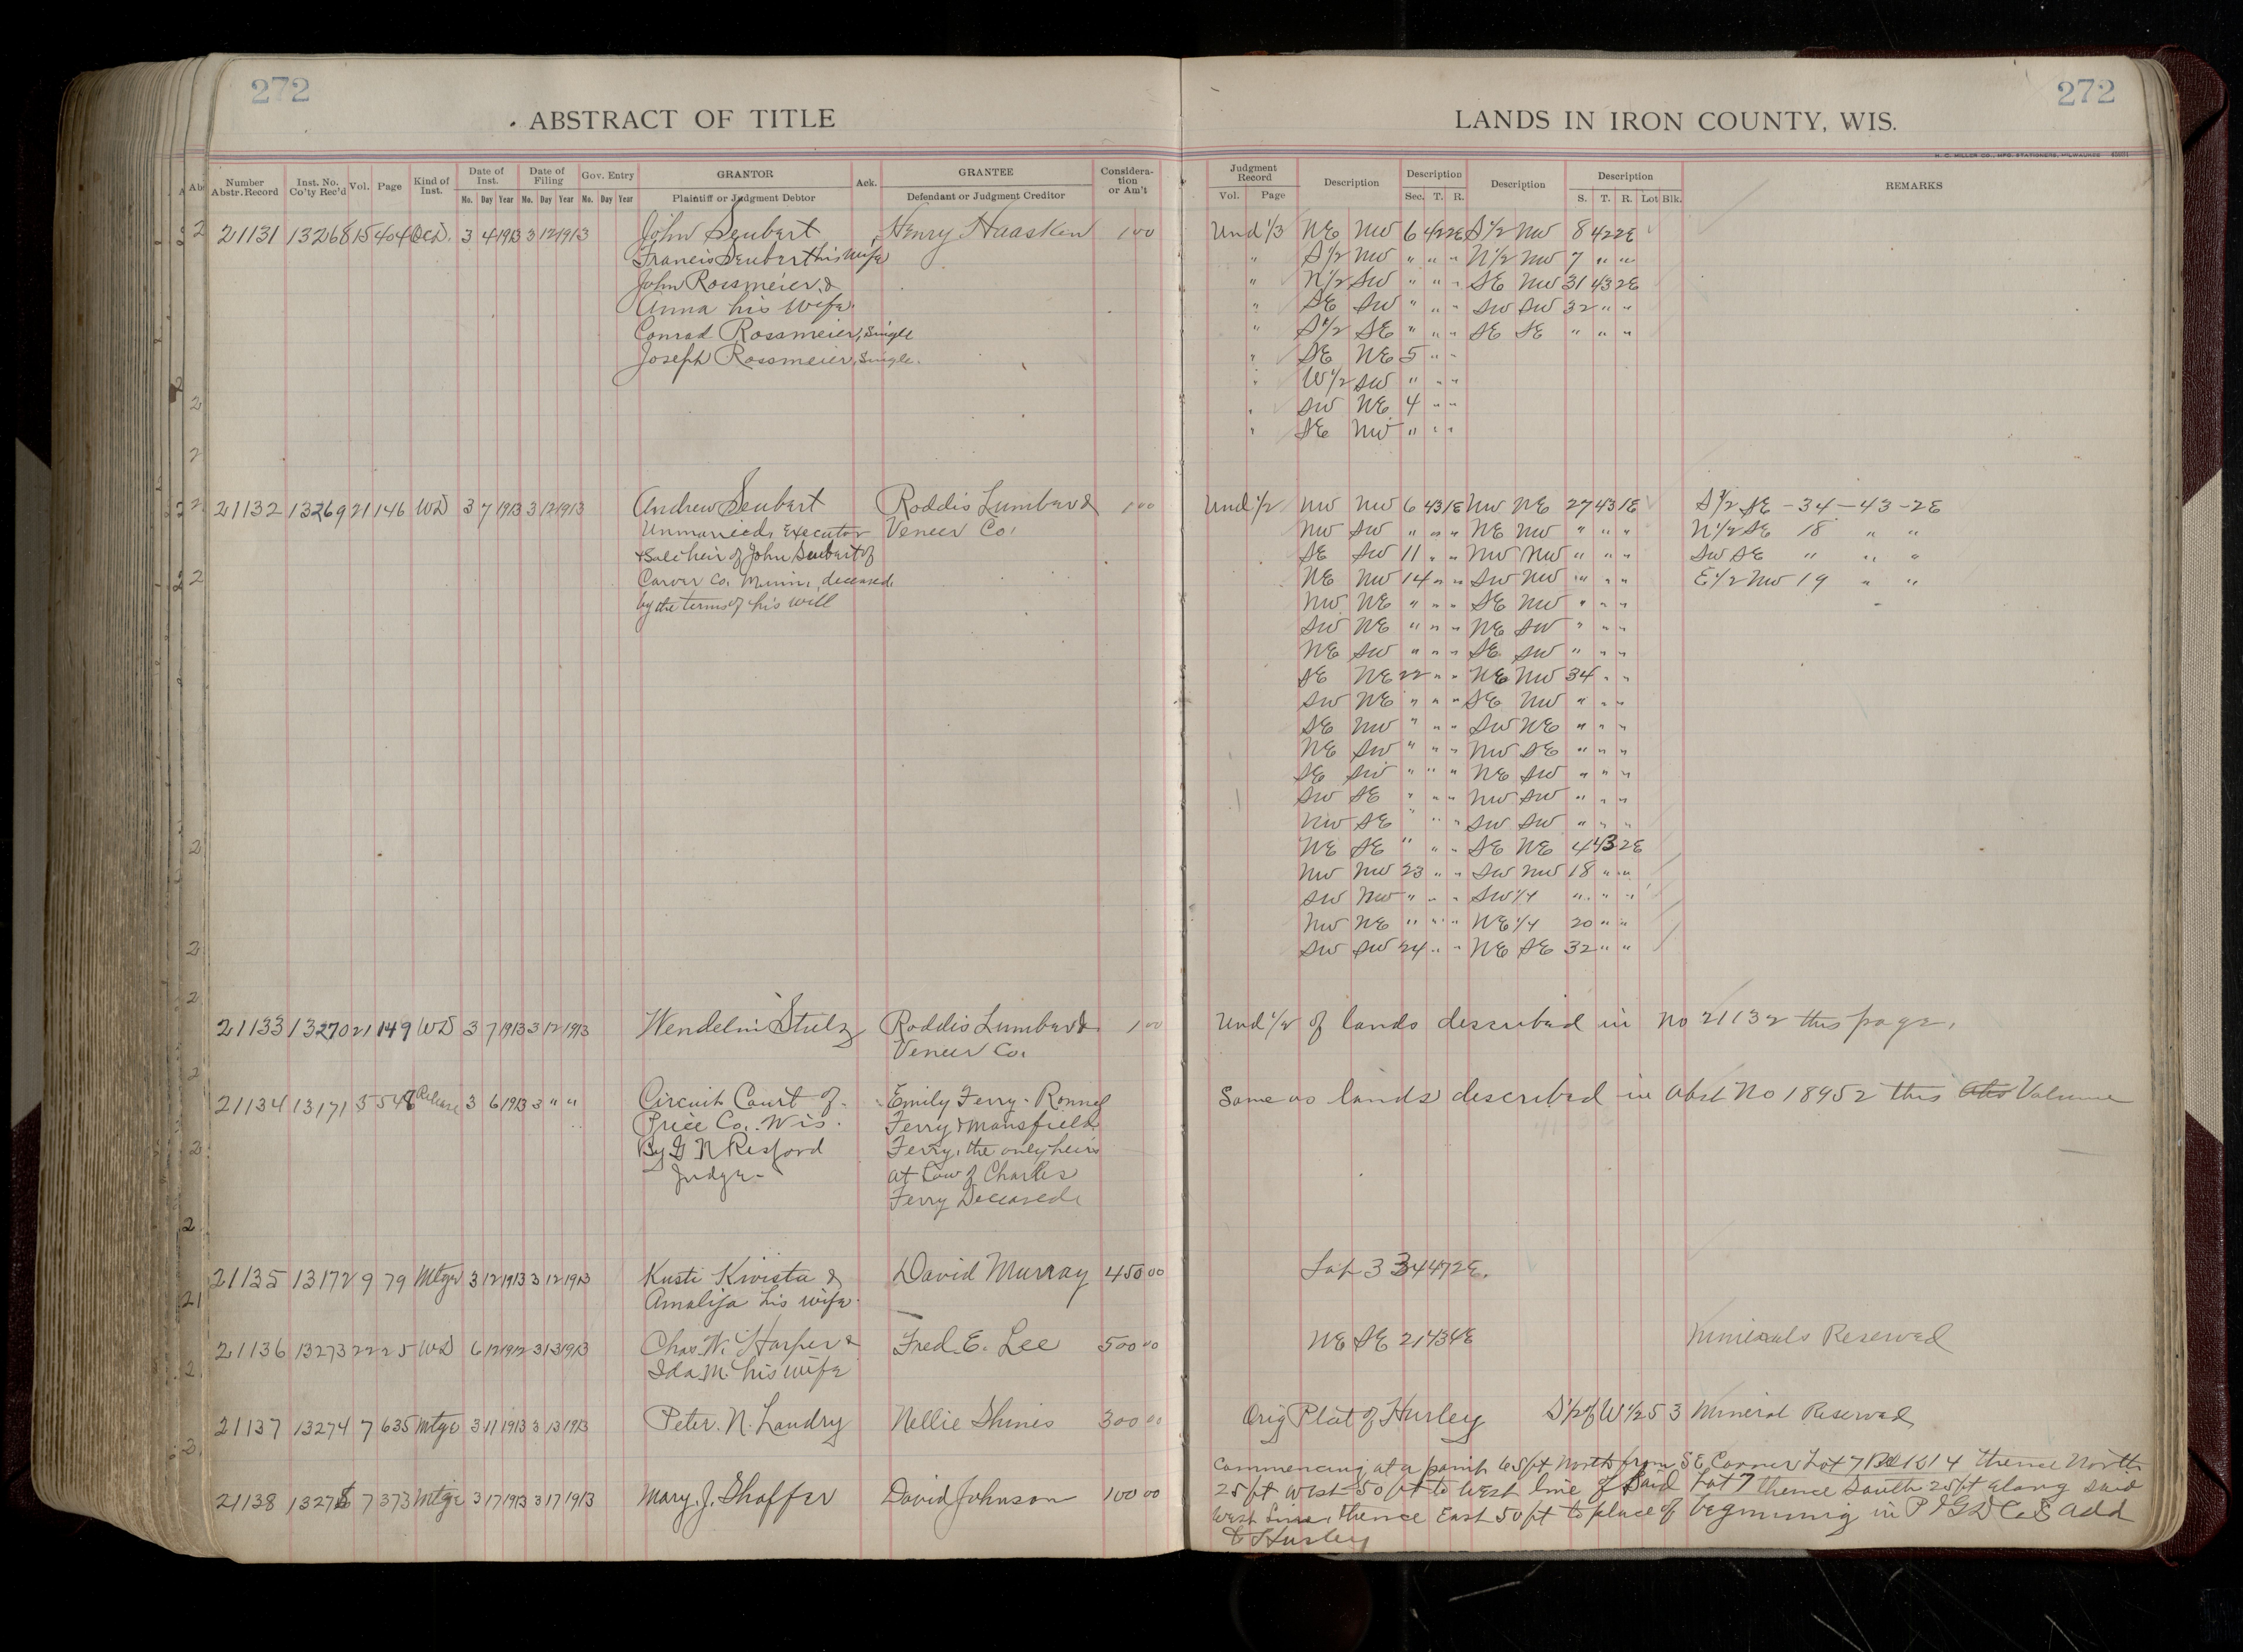 272
ABSTRACT OF TITLE
Number Abstr. Record Inst. No. Co'ty Rec'd Vol. Page Kind of Inst. Date of Inst. Date of Filing Gov. Entry GRANTOR Ack. GRANTEE Consideration or Am't
Mo. Day Year Mo. Day Year Mo. Day Year Plaintiff or Judgment Debtor Defendant or Judgment Creditor
21131 13268 15 404 3 4 1913 3 12 1913 John Seubert Henry Haasken 1 00
Francis Seubert his wife
John Rossmeier &
Anna his wife
Conrad Rossmeier, single
Joseph Rossmeier, single.
21132 13269 21 146 WD 3 7 1913 3 12 1913 Andrew Seubert Roddis Lumber & 1 00
Unmarried, Executor Veneer Co.
& Sole heir of John Seubert of
Carver Co. Minn. deceased
by the terms of his will
21133 13270 21 149 WD 3 7 1913 3 12 1913 Wendelin Stulz Roddis Lumber & 1 00
Veneer Co.
21134 13171 5 548 Release 3 6 1913 3 " " Circuit Court of Emily Ferry - Ronnel
Price Co. Wis. Ferry & Mansfield
By G N Risjord Ferry, the only heirs
Judge at Law of Charles
Ferry Deceased
21135 13172 9 79 Mtge 3 12 1913 3 12 1913 Kusti Kivista & David Murray 450 00
Amalija his wife
21136 13273 22 25 WD 6 12 1912 3 13 1913 Chas. W. Harper & Fred. E. Lee 500 00
Ida M. his wife
21137 13274 7 635 Mtge 3 11 1913 3 13 1913 Peter. N. Landry Nellie Shinis 300 00
21138 7 373 Mtge 3 17 1913 3 17 1913 Mary. J. Shaffer David Johnson 100 00
272
LANDS IN IRON COUNTY, WIS.
H. C. MILLER CO., MFG. STATIONERS, MILWAUKEE
Judgment Record Description Description Description Description REMARKS
Vol. Page Sec. T. R. S. T. R. Lot Blk.
Und 1/3 NE NW 6 42 2E S1/2 NW 8 42 2E
" S1/2 NW " " " N1/2 NW 7 " "
" N1/2 SW " " " SE NW 31 43 2E
" SE SW " " " SW SW 32 " "
" S1/2 SE " " " SE SE " " "
" SE NE 5 " "
" W1/2 SW " " "
" SW NE 4 " "
" SE NW " " "
Und 1/2 NW NW 6 43 1E NW NE 27 43 1E S1/2 SE - 34 - 43 - 2E
NW SW " " " NE NW " " " N1/2 SE 18 " "
SE SW 11 " " NW NW " " " SW SE " " "
NE NW 14 " " SW NW " " " E1/2 NW 19 " "
NW NE " " " SE NW " " "
SW NE " " " NE SW " " "
NE SW " " " SE SW " " "
SE NE 22 " " NE NW 34 " "
SW NE " " " SE NW " " "
SE NW " " " SW NE " " "
NE SW " " " NW SE " " "
SE SW " " " NE SW " " "
SW SE " " " NW SW " " "
NW SE " " " SW SW " " "
NE SE " " " SE NE 4 43 2E
NW NW 23 " " SW NW 18 " "
SW NW " " " SW1/4 " " "
NW NE " " " NE1/4 20 " "
SW SW 24 " " NE SE 32 " "
Und 1/2 of lands described in No 21132 this page.
Same as lands described in Abst No 18952 this Abs Volume
Lot 3 34 47 2E.
NE SE 21 43 4E Minerals Reserved
Orig Plat of Hurley S1/2 of W1/2 5 3 Mineral Reserved
Commencing at a point 65 ft North from SE Corner Lot 7 Blk 14 thence North
25 ft West 50 ft to West line of Said Lot 7 thence South 25 ft along said
West Line, thence East 50 ft to place of beginning in add
to Hurley